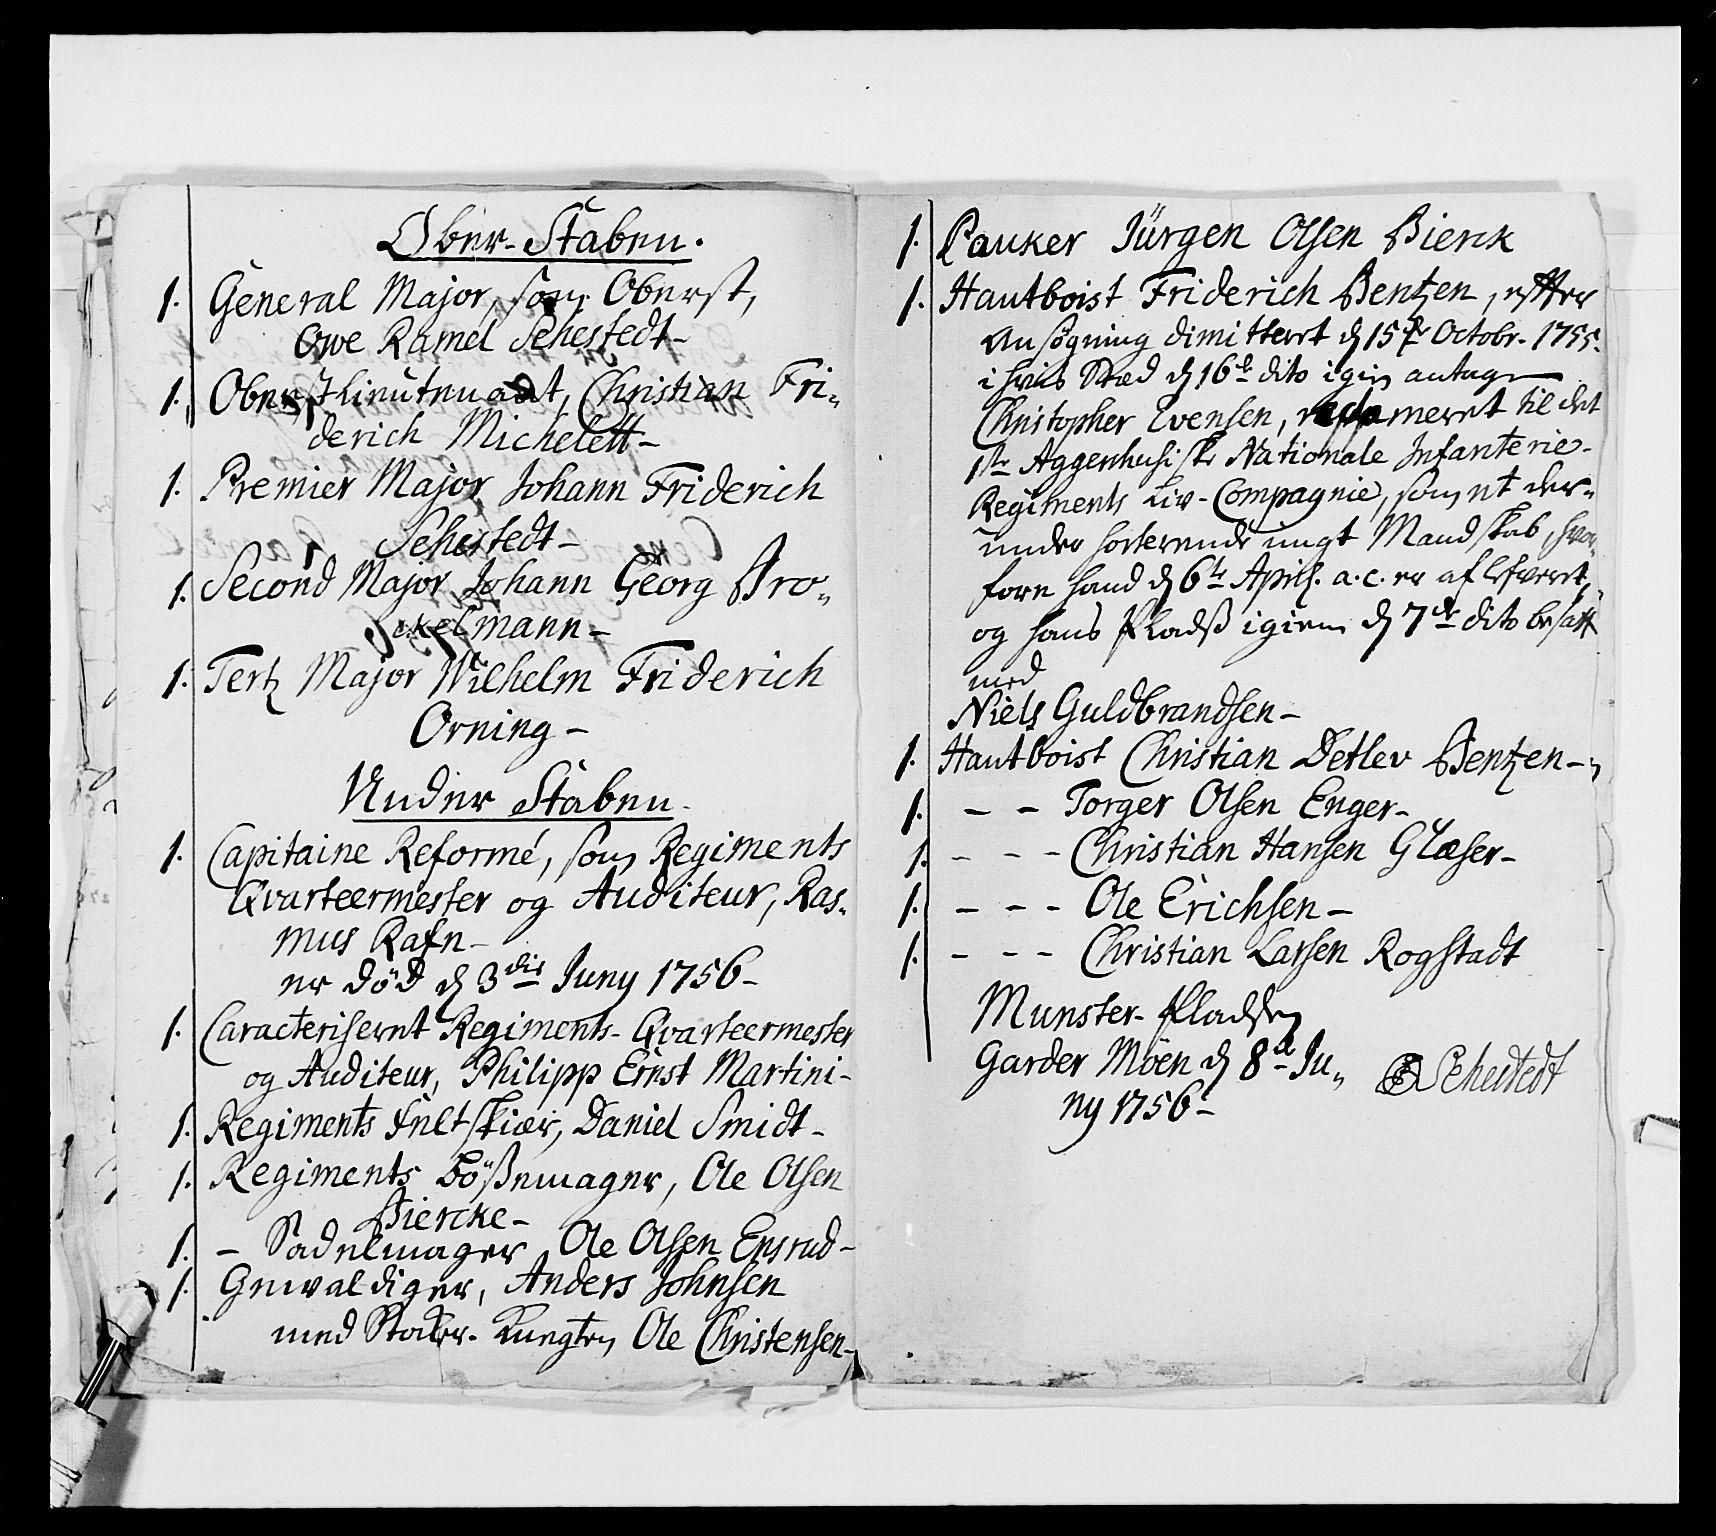 Ober-Staben.
1. General Major, som Oberst,
Owe Ramel Sehestedt-
1. Oberst Lieutenant, Christian Fri„
derich Michelett-
1. Premier Major Johann Friderich
Sehestedt-
1. Second Major Johann Georg Bro„
ckelmann-
1. Tertz Major Wilhelm Friderich
Orning-
Under Staben.
1. Capitaine Reformé, som Regiments
Qvarteermester og Auditeur, Ras„
mus Rafn-
er død d 3die Juny 1756-
1. Caracteriseret Regiments-Qvarteermester
og Auditeur, Philipp Ernst Martini-
1. Regiments Feltskiær, Daniel Smidt-
1. Regiments bößemager, Ole Olsen
Biercke-
1. - Sadelmager Ole Olsen Ensrud-
1. Gewaldiger, Anders Johnsen
med Stocker-Knegten Ole Christensen-
1. Pauker Jürgen Olsen Bierck
1. Hautboist Friderich Bentzen, efter
Ansøgning dimitteret d 15de Octobr. 1755.
i hvis Sted d 16de dito igien antagen
Christopher Evensen, reclameret til det
1ste Aggershusiske Nationale Infanterie-
Regiments Liv-Compagnie, som et der„
under sorterende ungt Mandskab, hvor„
fore hand d 6te April. a.c. er afleveret,
og hans Pladß igien d 7de dito besatt
med
Niels Guldbrandsen-
1. Hautboist Christian Detlev Bentzen-
1. - - Torger Olsen Enger-
1. - - - Christian Hansen Glæser-
1. - - - Ole Erichsen-
1. - - - Christian Larsen Rogstadt
Munster-Pladsen
Garder Moen d 8de Ju„
ny 1756-
Sehestedt